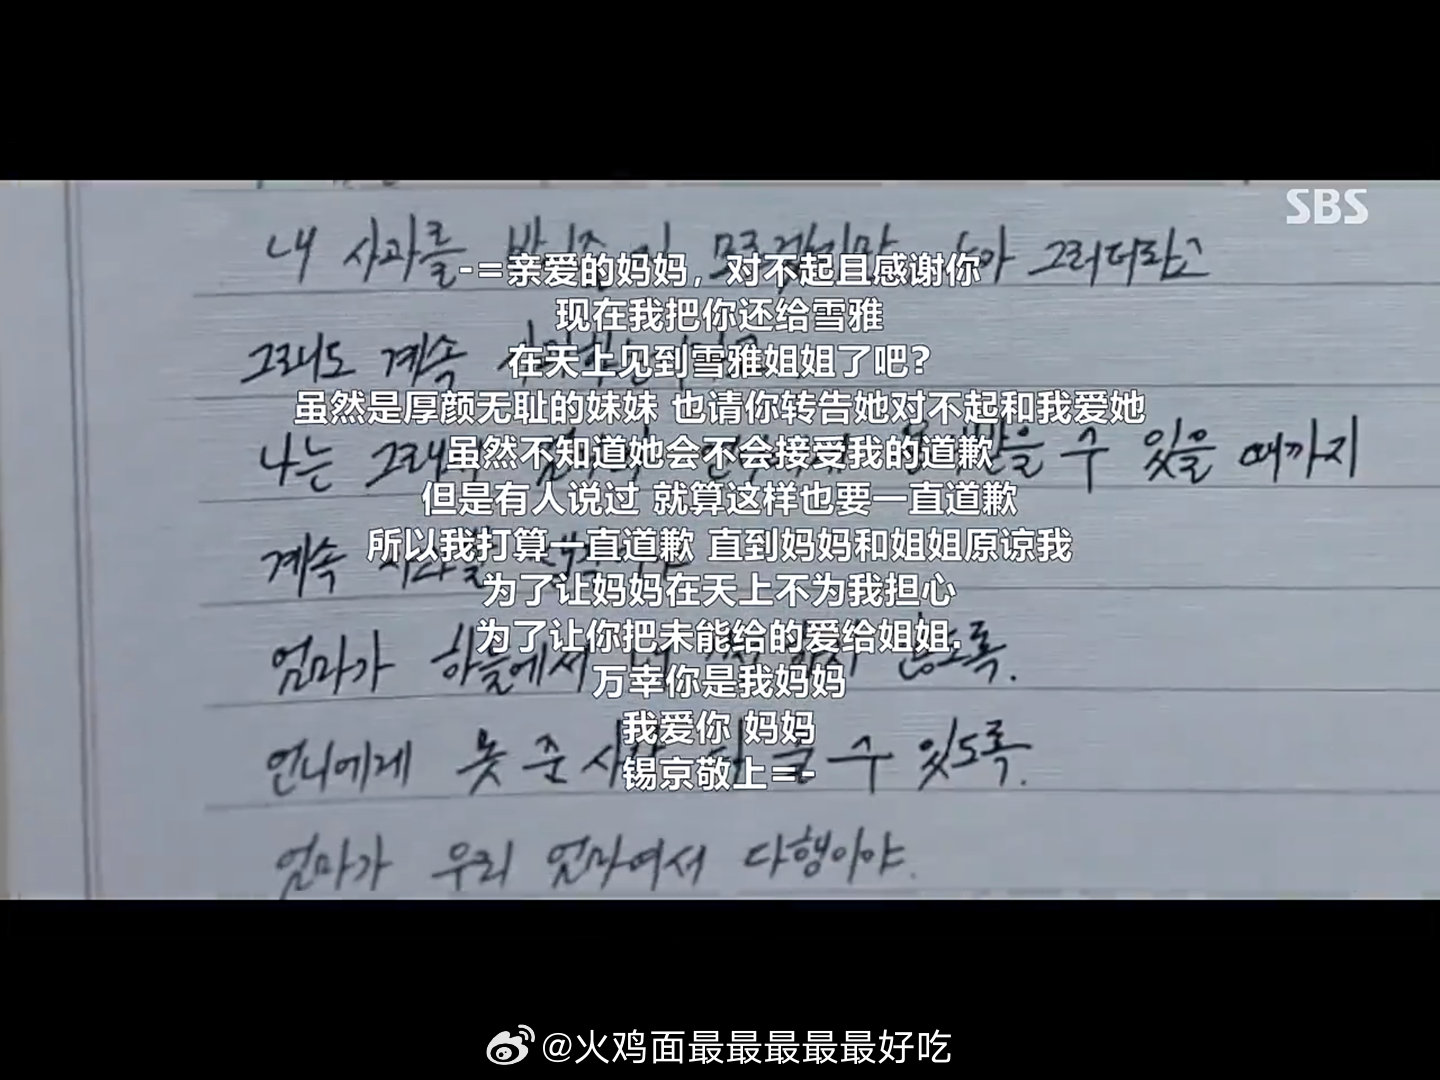 SBS
내 사과를 모르겠지만 그러더라고
-=亲爱的妈妈，对不起且感谢你
现在我把你还给雪雅
在天上见到雪雅姐姐了吧?
그래도 계속
虽然是厚颜无耻的妹妹 也请你转告她对不起和我爱她
나는 그래서 수 있을 때까지
虽然不知道她会不会接受我的道歉
但是有人说过 就算这样也要一直道歉
所以我打算一直道歉 直到妈妈和姐姐原谅我
계속
为了让妈妈在天上不为我担心
为了让你把未能给的爱给姐姐.
엄마가 하늘에서 않도록.
万幸你是我妈妈
我爱你 妈妈
언니에게 못 준 수 있도록.
锡京敬上=-
엄마가 우리 엄마여서 다행이야.
@火鸡面最最最最最好吃